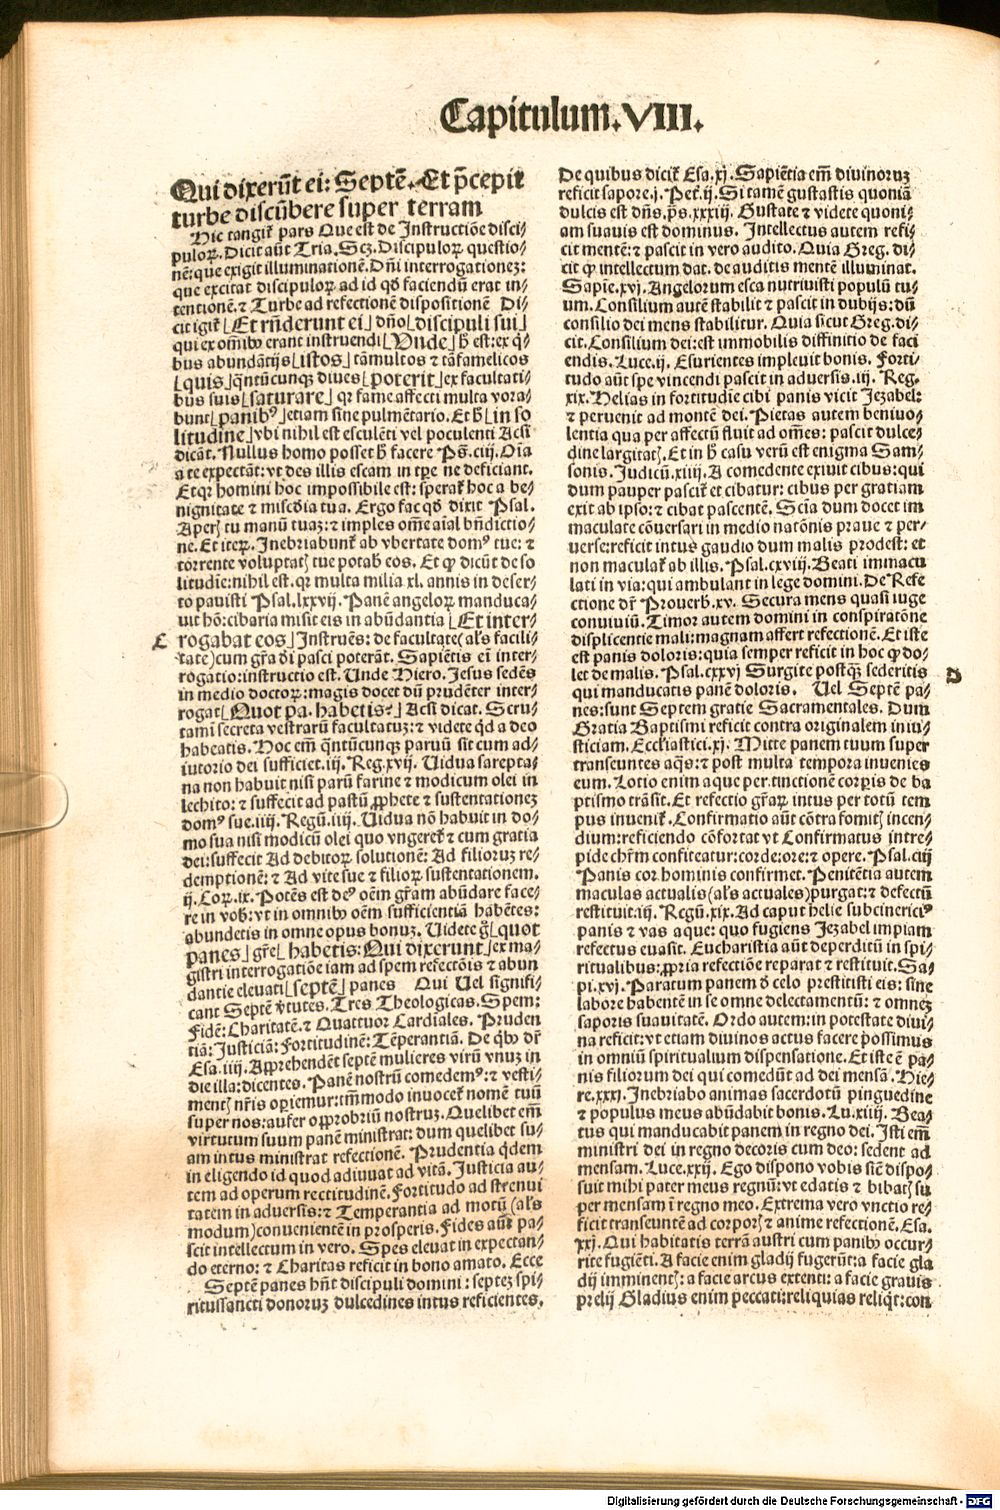 Capitulum.VIII.
Qui dixerūt ei: Septē. Et p̄cepit
turbe discūbere super terram
Hic tangit᷑ pars Que est de Instructiōe disci⸗
puloꝝ. Dicit aūt Tria. Scz. Discipuloꝝ questio⸗
nē: que exigit illuminationē. Dn̄i interrogationez:
que excitat discipuloꝝ ad id qd̄ faciendū erat in⸗
tentionē. ⁊ Turbe ad refectionē dispositionē Di⸗
cit igit᷑ [Et rn̄derunt ei] dn̄o [discipuli sui]
qui ex om̄ibꝰ erant instruendi [Vnde] h̄ est: ex q̄⸗
bus abundātijs [istos] tāmultos ⁊ tāfamelicos
[quis] q̄ntūcunqꝫ diues [poterit] ex facultati⸗
bus suis [saturare] qꝛ fame affecti multa vora⸗
bunt [panibꝰ] etiam sine pulmētario. Et h̄ [in so
litudine] vbi nihil est esculēti vel poculenti Acsi
dicāt. Nullus homo posset h̄ facere Ps̄. ciij. Oīa
a te expectāt: vt des illis escam in tp̄e ne deficiant.
Etqꝫ homini hoc impossibile est: sperat᷑ hoc a be⸗
nignitate ⁊ misc̄dia tua. Ergo fac qd̄ dixit Psal.
Aperis tu manū tuaz: ⁊ imples om̄e aīal bn̄dictio⸗
ne. Et iteꝝ. Inebriabunt᷑ ab vbertate domꝰ tue: ⁊
torrente voluptatis tue potabis eos. Et qꝫ dicūt de so
litudīe: nihil est. qꝛ multa milia xl. annis in deser⸗
to pauisti Psal. lxxvij. Panē angeloꝝ manduca⸗
uit hō: cibaria misit eis in abūdantia [Et inter⸗
C
rogabat eos] Instruēs: de facultate (al's facili⸗
tate) cum gr̄a dei pasci poterāt. Sapiētis ei interr⸗
rogatio: instructio est. Unde Hiero. Jesus sedēs
in medio doctoꝝ: magis docet dū prudēter inter⸗
rogat [Quot pa. habetis?] Acsi dicat. Scru⸗
tamī secreta vestraꝝ facultatuz: ⁊ videte qd̄ a deo
habeatis. Hoc em̄ q̄ntūcunqꝫ paruū sit cum ad⸗
iutorio dei sufficiet. iij. Reg. xvij. Uidua sarepta⸗
na non habuit nisi parū farine ⁊ modicum olei in
lechito: ⁊ suffecit ad pastū ꝓphete ⁊ sustentationez
domꝰ sue. iiij. Regū. iiij. Uidua nō habuit in do⸗
mo sua nisi modicū olei quo vngeret᷑ ⁊ cum gratia
dei: suffecit Ad debitoꝝ solutionē: Ad filioruz re⸗
demptionē: ⁊ Ad vite sue ⁊ filioꝝ sustentationem.
ij. Coꝝ. ix. Potēs est deꝰ oēm gr̄am abūdare face⸗
re in vob̄: vt in omnibꝰ oēm sufficientiā habētes:
abundetis in omne opus bonuz. Uidete g̊ [quot
panes] gr̄e [habetis: Qui dixerunt] ex ma⸗
gistri interrogatiōe iam ad spem refectōis ⁊ abun
dantie eleuati [septē] panes Qui Uel signifi⸗
cant Septē v̄tutes. Tres Theologicas. Spem:
Fidē: Charitatē. ⁊ Quattuor Cardiales. Pruden
tiā: Justiciā: Fortitudinē: Tēperantiā. De qbꝰ dr̄
Esa. iiij. Apprehendēt septē mulieres virū vnuz in
die illa: dicentes. Panē nostrū comedemꝰ: ⁊ vesti⸗
mentis nr̄is opiemur: tm̄modo inuocet᷑ nomē tuū
super nos: aufer opprobriū nostruz. Quelibet em̄
virtutum suum panē ministrat: dum quelibet su⸗
am intus ministrat refectionē. Prudentia q̇dem
in eligendo id quod adiuuat ad vitā. Justicia au⸗
tem ad operum rectitudinē. Fortitudo ad strenui
tatem in aduersis: ⁊ Temperantia ad motū (al's
modum) conuenientē in prosperis. Fides aūt pa⸗
scit intellectum in vero. Spes eleuat in expectan⸗
do eterno: ⁊ Charitas reficit in bono amato. Ecce
Septē panes hn̄t discipuli domini: septez spi⸗
ritussancti donoruz dulcedines intus reficientes.
De quibus dicit᷑ Esa. xj. Sapiētia em̄ diuinoruz
reficit sapore. j. Pet᷑. ij. Si tamē gustastis quoniā
dulcis est dn̄s. p̄s. xxxiij. Gustate ⁊ videte quoni⸗
am suauis est dominus. Intellectus autem refi⸗
cit mentē: ⁊ pascit in vero audito. Quia Greg. di⸗
cit qꝫ intellectum dat. de auditis mentē illuminat.
Sapīe. xvj. Angelorum esca nutriuisti populū tu⸗
um. Consilium autē stabilit ⁊ pascit in dubijs: dū
consilio dei mens stabilitur. Quia sicut Greg. di⸗
cit. Consilium dei: est immobilis diffinitio de faci
endis. Luce. ij. Esurientes impleuit bonis. Forti⸗
tudo aūt spe vincendi pascit in aduersis. iij. Reg.
xix. Helias in fortitudīe cibi panis vicit Jezabel:
⁊ peruenit ad montē dei. Pietas autem beniuo⸗
lentia qua per affectū fluit ad om̄es: pascit dulce⸗
dine largitatis. Et in h̄ casu verū est enigma Sam⸗
sonis. Judicū. xiiij. A comedente exiuit cibus: qui
dum pauper pascit᷑ et cibatur: cibus per gratiam
exit ab ipso: ⁊ cibat pascentē. Scīa dum docet im
maculate cōuersari in medio natōnis praue ⁊ per⸗
uerse: reficit intus gaudio dum malis prodest: et
non maculat᷑ ab illis. Psal. cxviij. Beati immacu
lati in via: qui ambulant in lege domini. De Refe
ctione dr̄ Prouerb̄. xv. Secura mens quasi iuge
conuiuiū. Timor autem domini in conspiratōne
displicentie mali: magnam affert refectionē. Et iste
est panis doloris: quia semper reficit in hoc qꝫ do⸗
let de malis. Psal. cxxvj Surgite postqꝫ sederitis
D
qui manducatis panē doloris. Uel Septē pa⸗
nes: sunt Septem gratie Sacramentales. Dum
Gratia Baptismi reficit contra originalem iniu⸗
sticiam. Eccl'iastici. xj. Mitte panem tuum super
transeuntes aq̄s: ⁊ post multa tempora inuenies
eum. Lotio enim aque per tinctionem corpis de ba
ptismo trāsit. Et refectio gr̄aꝝ intus per totū tem
pus inuenit᷑. Confirmatio aūt cōtra fomitis incen⸗
dium: reficiendo cōfortat vt Confirmatus intre⸗
pide chr̄m confiteatur: corde: ore: ⁊ opere. Psal. ciij
Panis cor hominis confirmet. Penitētia autem
maculas actualis (al's actuales) purgat: ⁊ defectū
restituit. iij. Regū. xix. Ad caput helie subcinericiꝰ
panis ⁊ vas aque: quo fugiens Jezabel impiam
refectus euasit. Eucharistia aūt deperditū in spi⸗
ritualibus: ꝓpria refectiōe reparat ⁊ restituit. Sa⸗
pi. xvj. Paratum panem d̄ celo prestitisti eis: sine
labore habentē in se omne delectamentū: ⁊ omnez
saporis suauitatē. Ordo autem: in potestate diui⸗
na reficit: vt etiam diuinos actus facere possimus
in omniū spiritualium dispensatione. Et iste ē pa⸗
nis filiorum dei qui comedūt ad dei mensā. Hie⸗
re. xxxj. Inebriabo animas sacerdotū pinguedine
⁊ populus meus abūdabit bonis. Lu. xiiij. Bea⸗
tus qui manducabit panem in regno dei. Isti em̄
ministri dei in regno decoris cum deo: sedent ad
mensam. Luce. xxij. Ego dispono vobis sicut̄ dispo⸗
suit mihi pater meus regnū: vt edatis ⁊ bibatis su
per mensam ī regno meo. Extrema vero vnctio re⸗
ficit transeuntē ad corporis ⁊ anime refectionē. Esa.
xxj. Qui habitatis terrā austri cum panibꝰ occur⸗
rite fugiēti. A facie enim gladij fugerūt: a facie gla
dij imminentis: a facie arcus extenti: a facie grauis
prelij Gladius enim peccati: reliquias reliq̇t: con
Digitalisierung gefördert durch die Deutsche Forschungsgemeinschaft - DFG